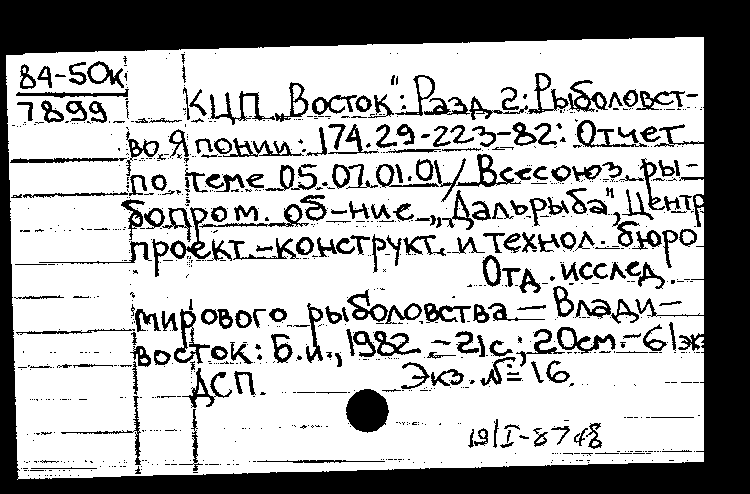 84-5Ок
7899
КЦП „Восток": Разд. 2: Рыболовст-
во Японии: 174.29-223-82: Отчет
по теме 05.07.01.01/ Всесоюз. ры-
бопром. об-ние „Дальрыба", Центр
проект.-конструкт. и технол. бюро
Отд. исслед.
мирового рыболовства. — Влади-
восток: Б.и., 1982. - 21с.; 20см. - 61экз
ДСП. Экз. №16.
19/I-8748